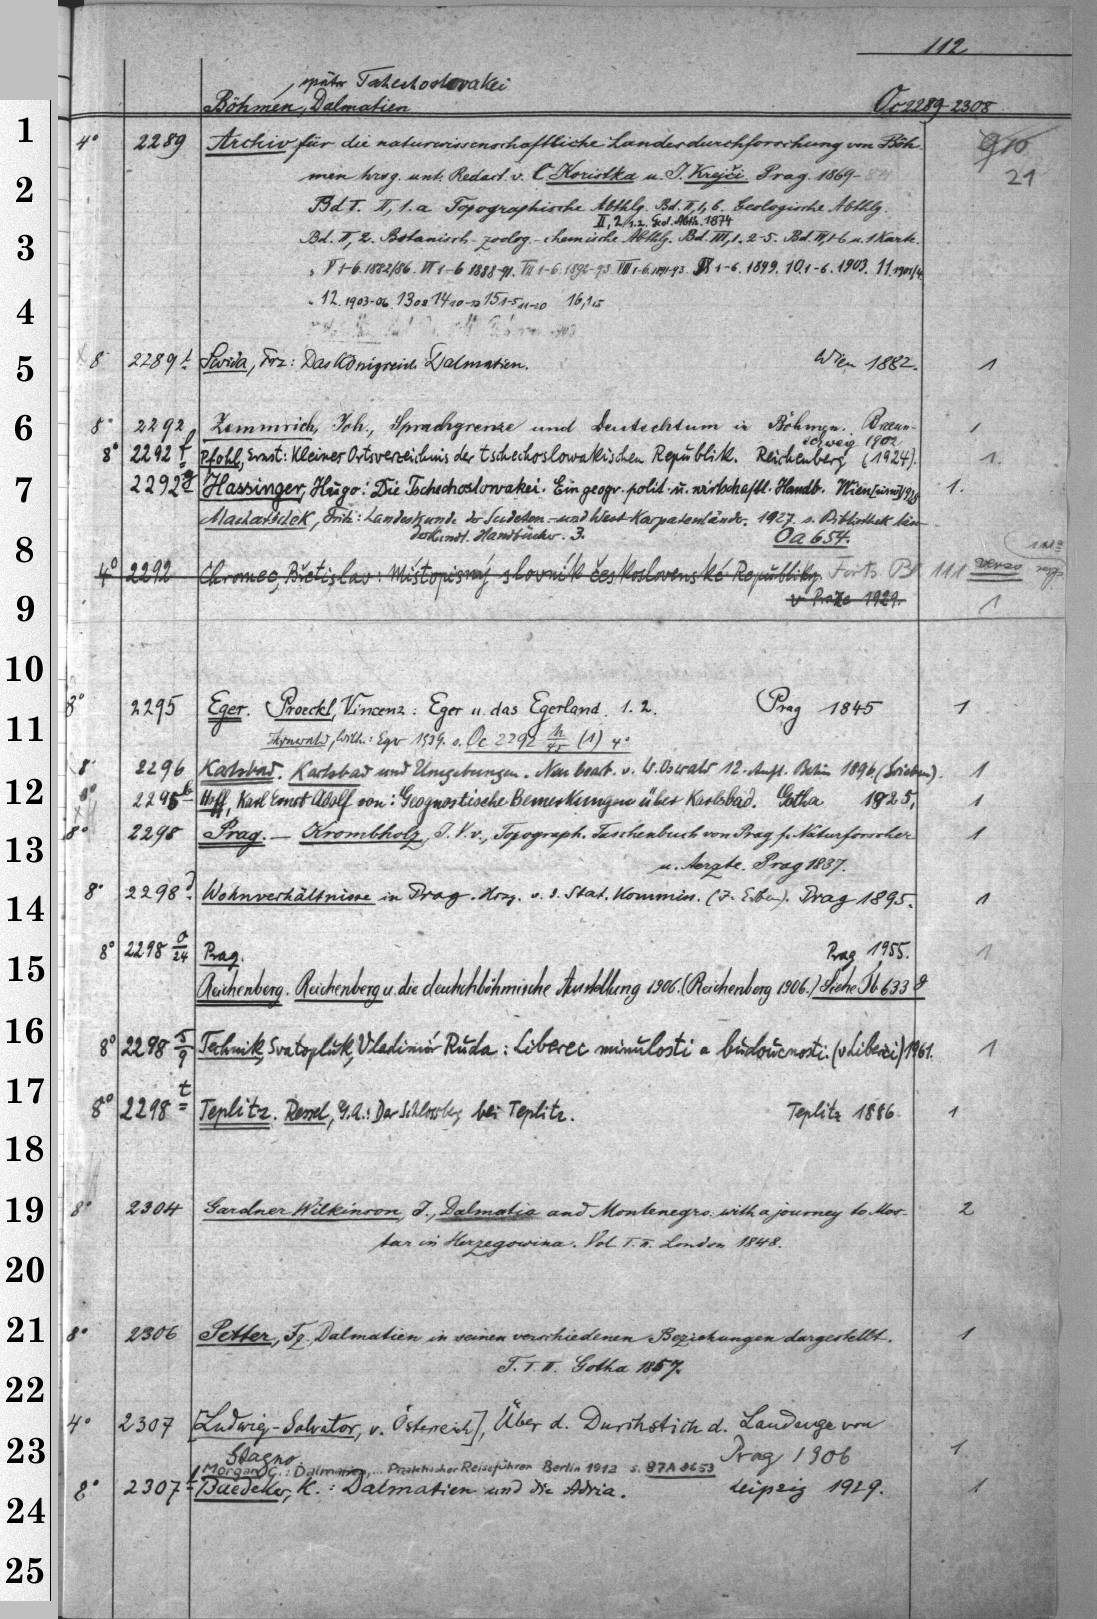 112
, später Tschechoslovakei
Böhmen, Dalmatien Oc 2289-2308
1 4° 2289 Archiv für die naturwissenschaftliche Landesdurchforschung von Böh- 9/10
2 men hrsg. unt. Redact. v. C. Koristka u. J. Krejči Prag. 1869- 21
Bd I. II, 1. a Topographische Abthlg. Bd. II, 1, b. Geologische Abthlg.
II, 2/1.2. Geol. Abth. 1874
3 Bd. II, 2. Botanisch-zoolog.-chemische Abthlg. Bd. III, 1. 2-5. Bd. IV, 1-6 u. 1 Karte.
V 1-6. 1882/86. VI 1-6 1888-91. VII 1-6. 1892-93. VIII 1-6. IX 1-6. 1899. 10. 1-6. 1903. 11. 1901/4.
4 12. 1903-06 13 02 14 10-12 15 1-5 11-20 16, 1,2
5 8° 2289 t Swida, Frz: Das Königreich Dalmatien. Wien 1882. 1
6 8° 2292 Zemmrich, Joh., Sprachgrenze und Deutschtum in Böhmen. Braun-
schweig 1902 1
8° 2292 f Pfohl, Ernst: Kleines Ortsverzeichnis der tschechoslowakischen Republik. Reichenberg (1924). 1.
7 2292 g Hassinger, Hugo: Die Tschechoslowakei. Ein geogr. polit. u. wirtschaftl. Handb. Wien [usw] 1925 1.
Machatschek, Fritz: Landeskunde der Sudeten- und West-Karpatenländer. 1927 s. Bibliothek län-
8 derkundl. Handbücher. 3. Oa 654.
4° 2292 Chromec, Břetislav: Místopisný slovník československé Republiky. Forts. Bl 111 verso
9 v Praze 1929. 1
10
8° 2295 Eger. Proeckl, Vincenz: Eger u. das Egerland. 1. 2. Prag 1845 1
11 Turnwald, Wilh.: Eger 1939. s. Oc 2292 h/45 (1) 4°
8° 2296 Karlsbad. Karlsbad und Umgebungen. Neu bearb. v. W. Oswald 12. Aufl. Berlin 1896 (Grieben). 1
12 8° 2296 b Hoff, Karl Ernst Adolf von: Geognostische Bemerkungen über Karlsbad. Gotha 1825. 1
13 8° 2298 Prag. — Krombholz, J. V. v., Topograph. Taschenbuch von Prag f. Naturforscher 1
u. Aerzte. Prag 1837.
14 8° 2298 d Wohnverhältnisse in Prag. Hrsg. v. d. Stat. Kommiss. Prag 1895. 1
8° 2298 o/24 Prag. Prag 1955. 1
15 Reichenberg. Reichenberg u. die deutschböhmische Ausstellung 1906. (Reichenberg 1906.) Siehe Tb 633 g
16 8° 2298 s/9 Technik, Svatopluk, Vladimír Ruda: Liberec minulosti a budoucnosti. (v Liberci) 1961. 1
17 8° 2298 t Teplitz. Ressel, G. A.: Der Schlossberg bei Teplitz. Teplitz 1886 1
18
19 8° 2304 Gardner Wilkinson, J., Dalmatia and Montenegro. with a journey to Mos- 2
20 tar in Herzegowina. Vol. I. II. London 1848.
21 8° 2306 Petter, Fz. Dalmatien in seinen verschiedenen Beziehungen dargestellt. 1
T. I. II. Gotha 1857.
22
4° 2307 [Ludwig-Salvator, v. Österreich], Über d. Durchstich d. Landenge von
23 Stagno. Prag 1906 1
Morgan, C.: Dalmatien, ... Praktischer Reiseführer Berlin 1912 s. 87A 8653
24 8° 2307 t Baedeker, K.: Dalmatien und die Adria. Leipzig 1929. 1
25